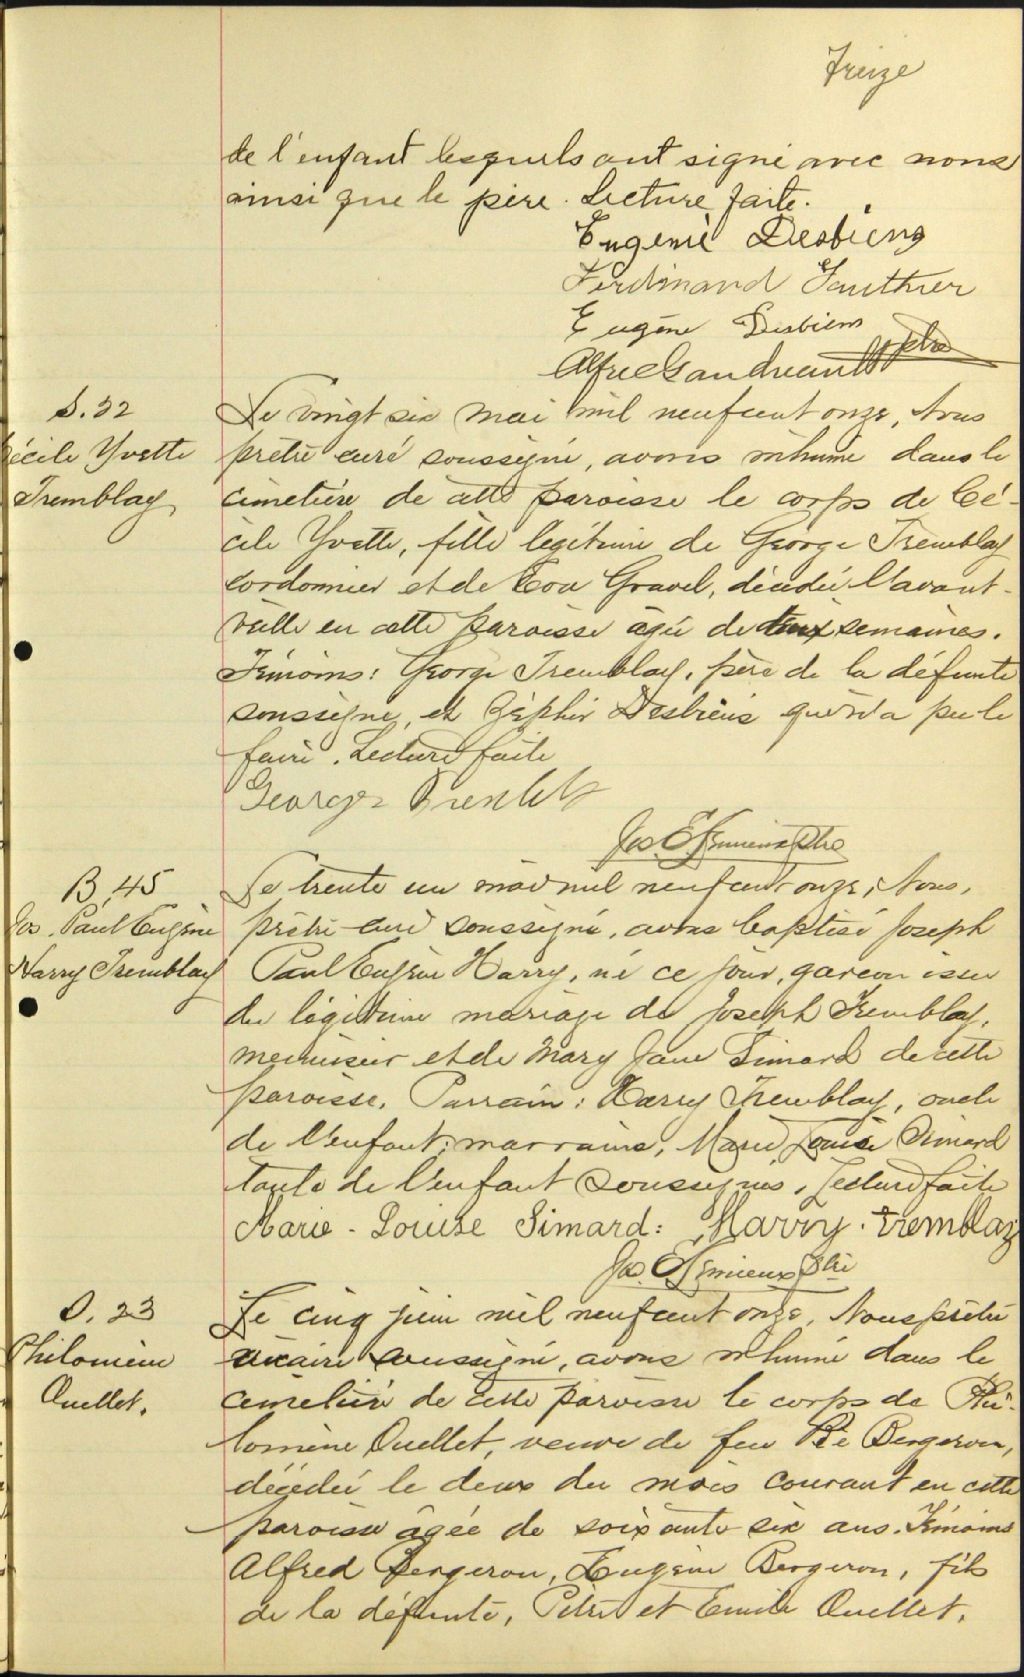 Treize
de l'enfant lesquels ont signé avec nous
ainsi que le père. Lecture faite.
Eugenie Desbiens
Ferdinand Gauthier
Eugène Desbiens
Alfred Gaudreault ptre
S. 22
Cécile Yvette
Tremblay
Le vingt six mai mil neuf cent onze, Nous
prêtre curé soussigné, avons inhumé dans le
cimetière de cette paroisse le corps de Cé-
cile Yvette, fille légitime de George Tremblay
cordonnier et de Eva Gravel, décédée l'avant-
veille en cette paroisse âgée de deux semaines.
Témoins: George Tremblay, père de la défunte
soussigné, et Zéphir Desbiens qui n'a pu le
faire. Lecture faite
Georges
Jos. E. Lemieux Ptre
B. 45
Jos. Paul Eugène
Harry Tremblay
Le trente un mai mil neuf cent onze, Nous,
prêtre curé soussigné, avons baptisé Joseph
Paul Eugène Harry, né ce jour, garçon issu
du légitime mariage de Joseph Tremblay,
menuisier et de Mary Jane Simard de cette
paroisse. Parrain: Harry Tremblay, oncle
de l'enfant; marraine, Marie Louise Simard
tante de l'enfant soussignés. Lecture faite
Marie-Louise Simard: Harry. tremblay
Jos. E. Lemieux Ptre
S. 23
Philomène
Ouellet.
Le cinq juin mil neuf cent onze, Nous prêtre
vicaire soussigné, avons inhumé dans le
cimetière de cette paroisse le corps de Phi-
lomène Ouellet, veuve de feu Bergeron,
décédée le deux du mois courant en cette
paroisse âgée de soixante six ans. Témoins
Alfred Bergeron, Eugène Bergeron, fils
de la défunte, Pitre et Emile Ouellet.